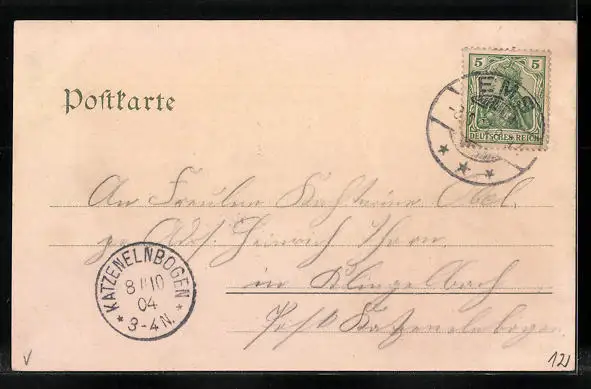 Postkarte
5 5
EMS
DEUTSCHES REICH
An Freulein Katherine
Adr. Heinrich
in Klingelbach
Post Katzenelnbogen
KATZENELNBOGEN
8 10
04
* 3-4 N. *
V
121